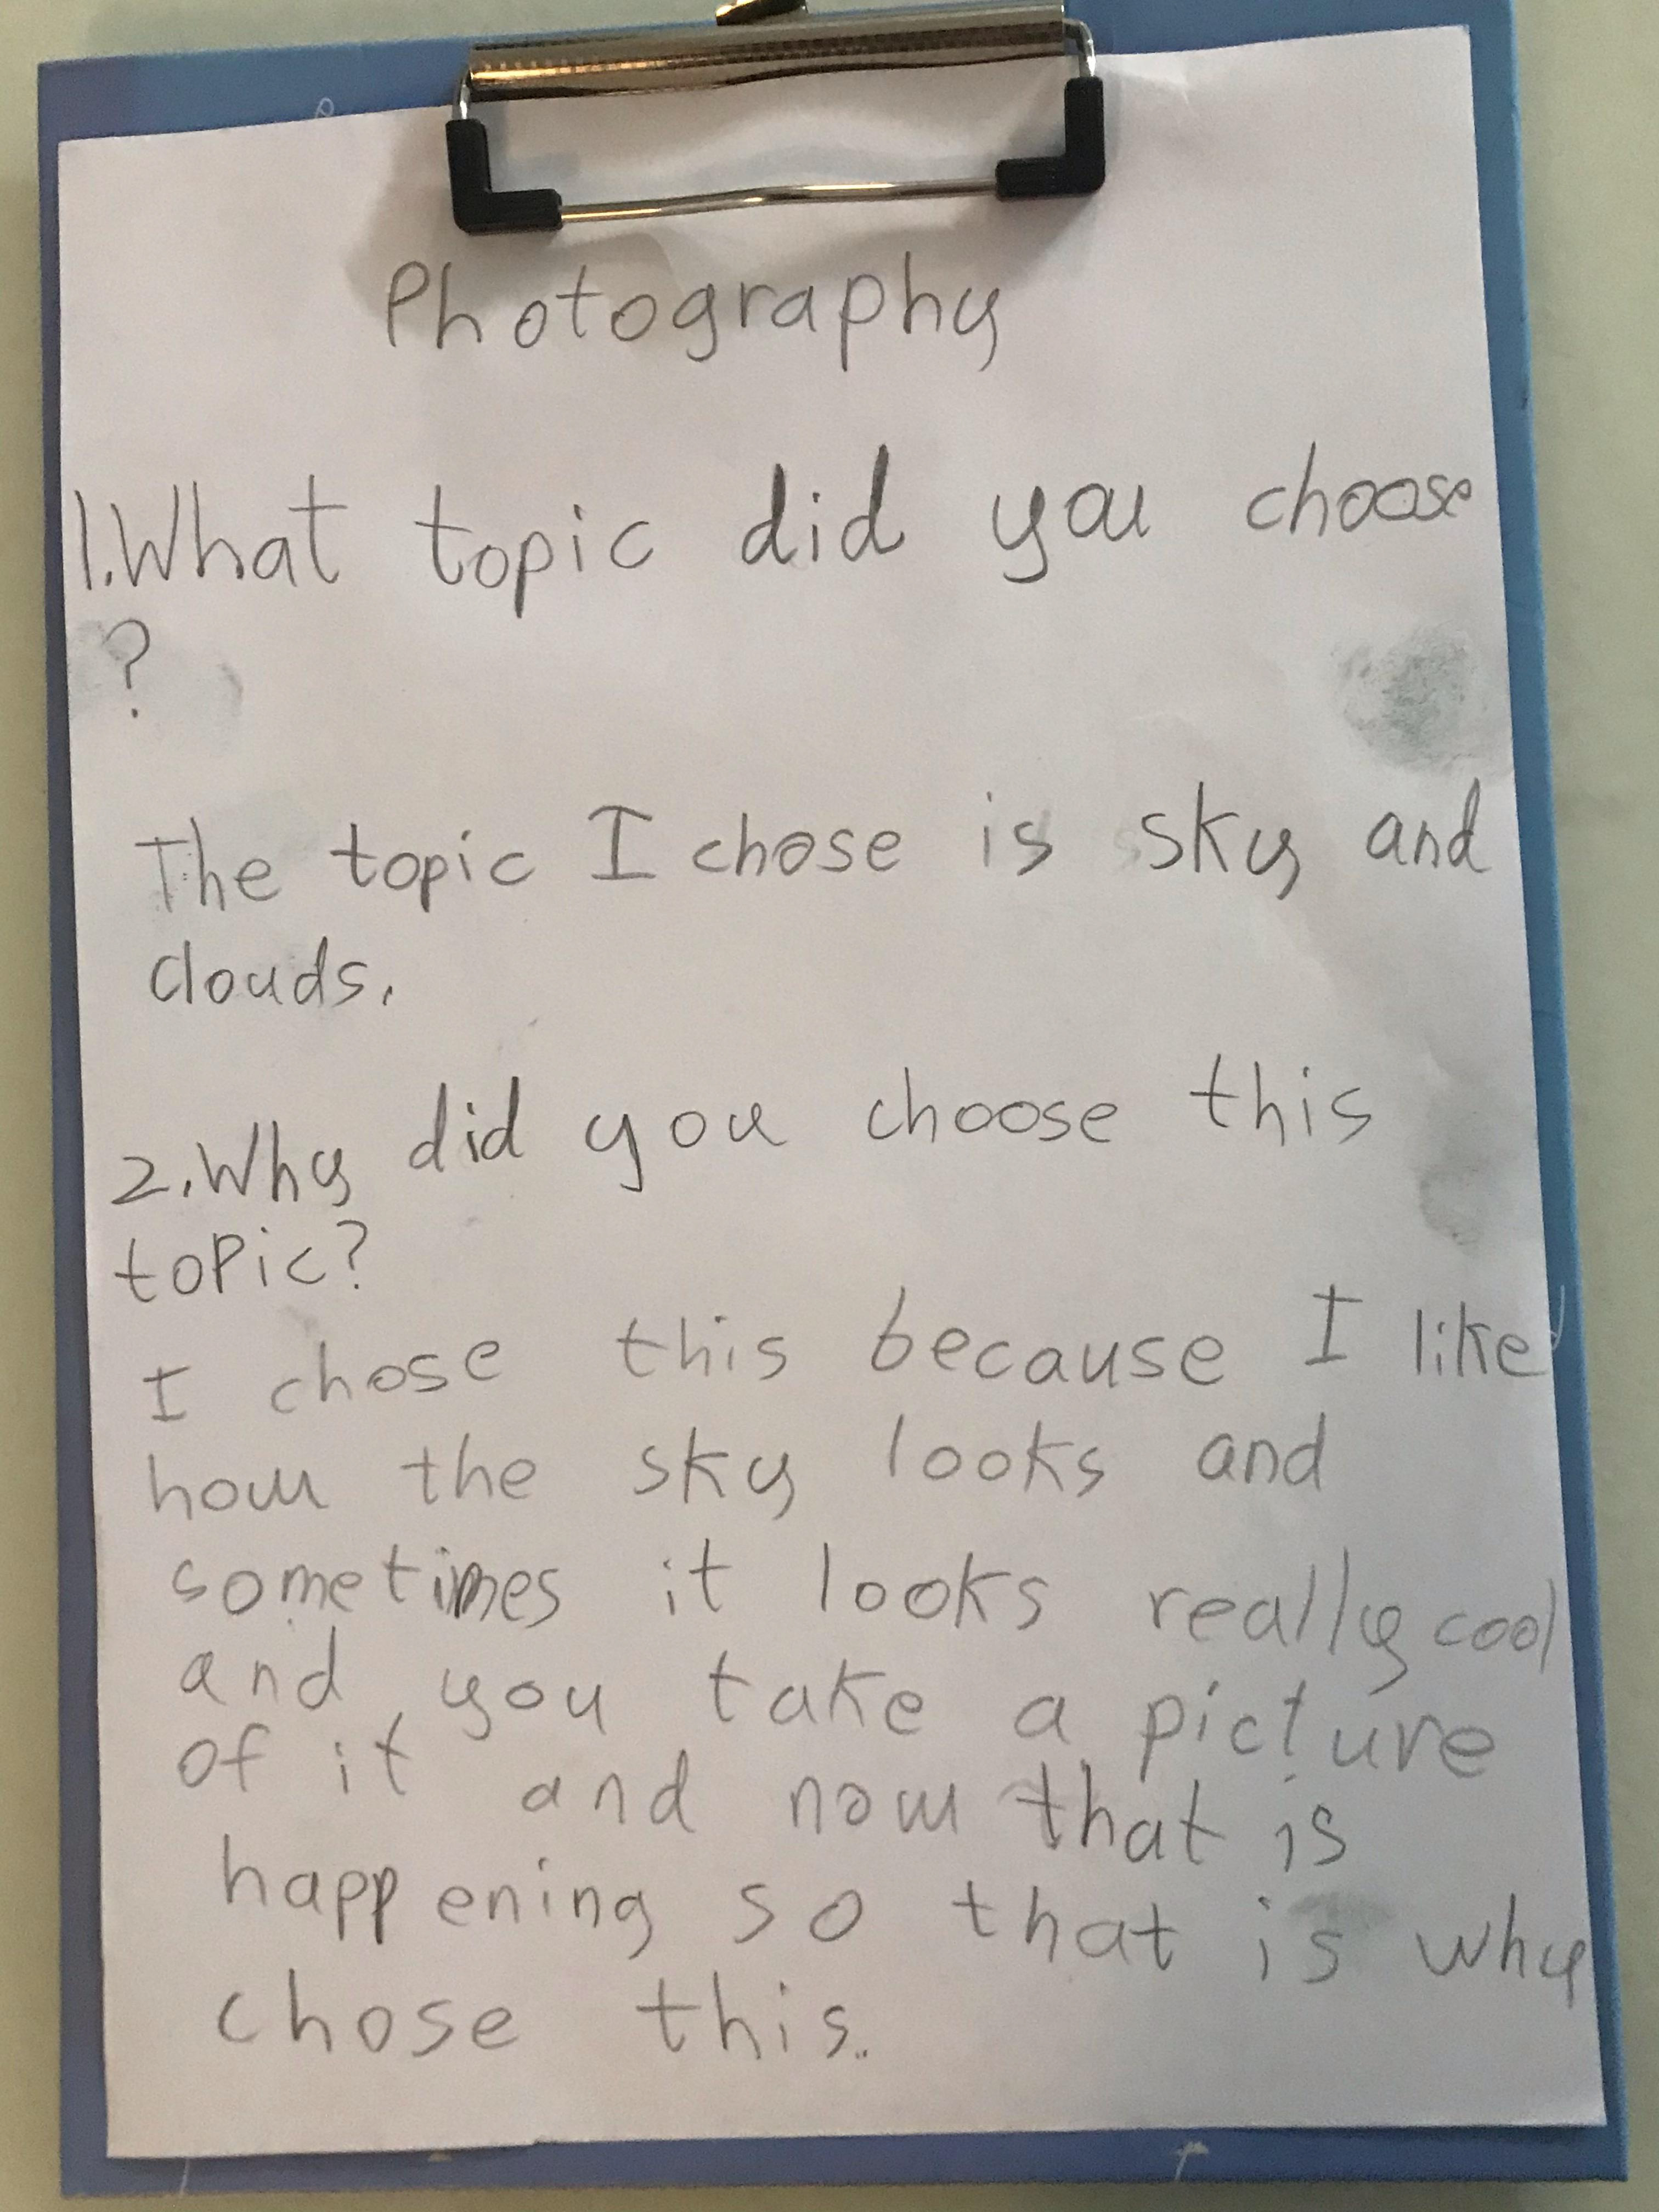 Photography
1.What topic did you choose
?
The topic I chose is sky and
clouds.
2.Why did you choose this
topic?
I chose this because I like
how the sky looks and
sometimes it looks really cool
and you take a picture
of it and now that is
happening so that is why
chose this.